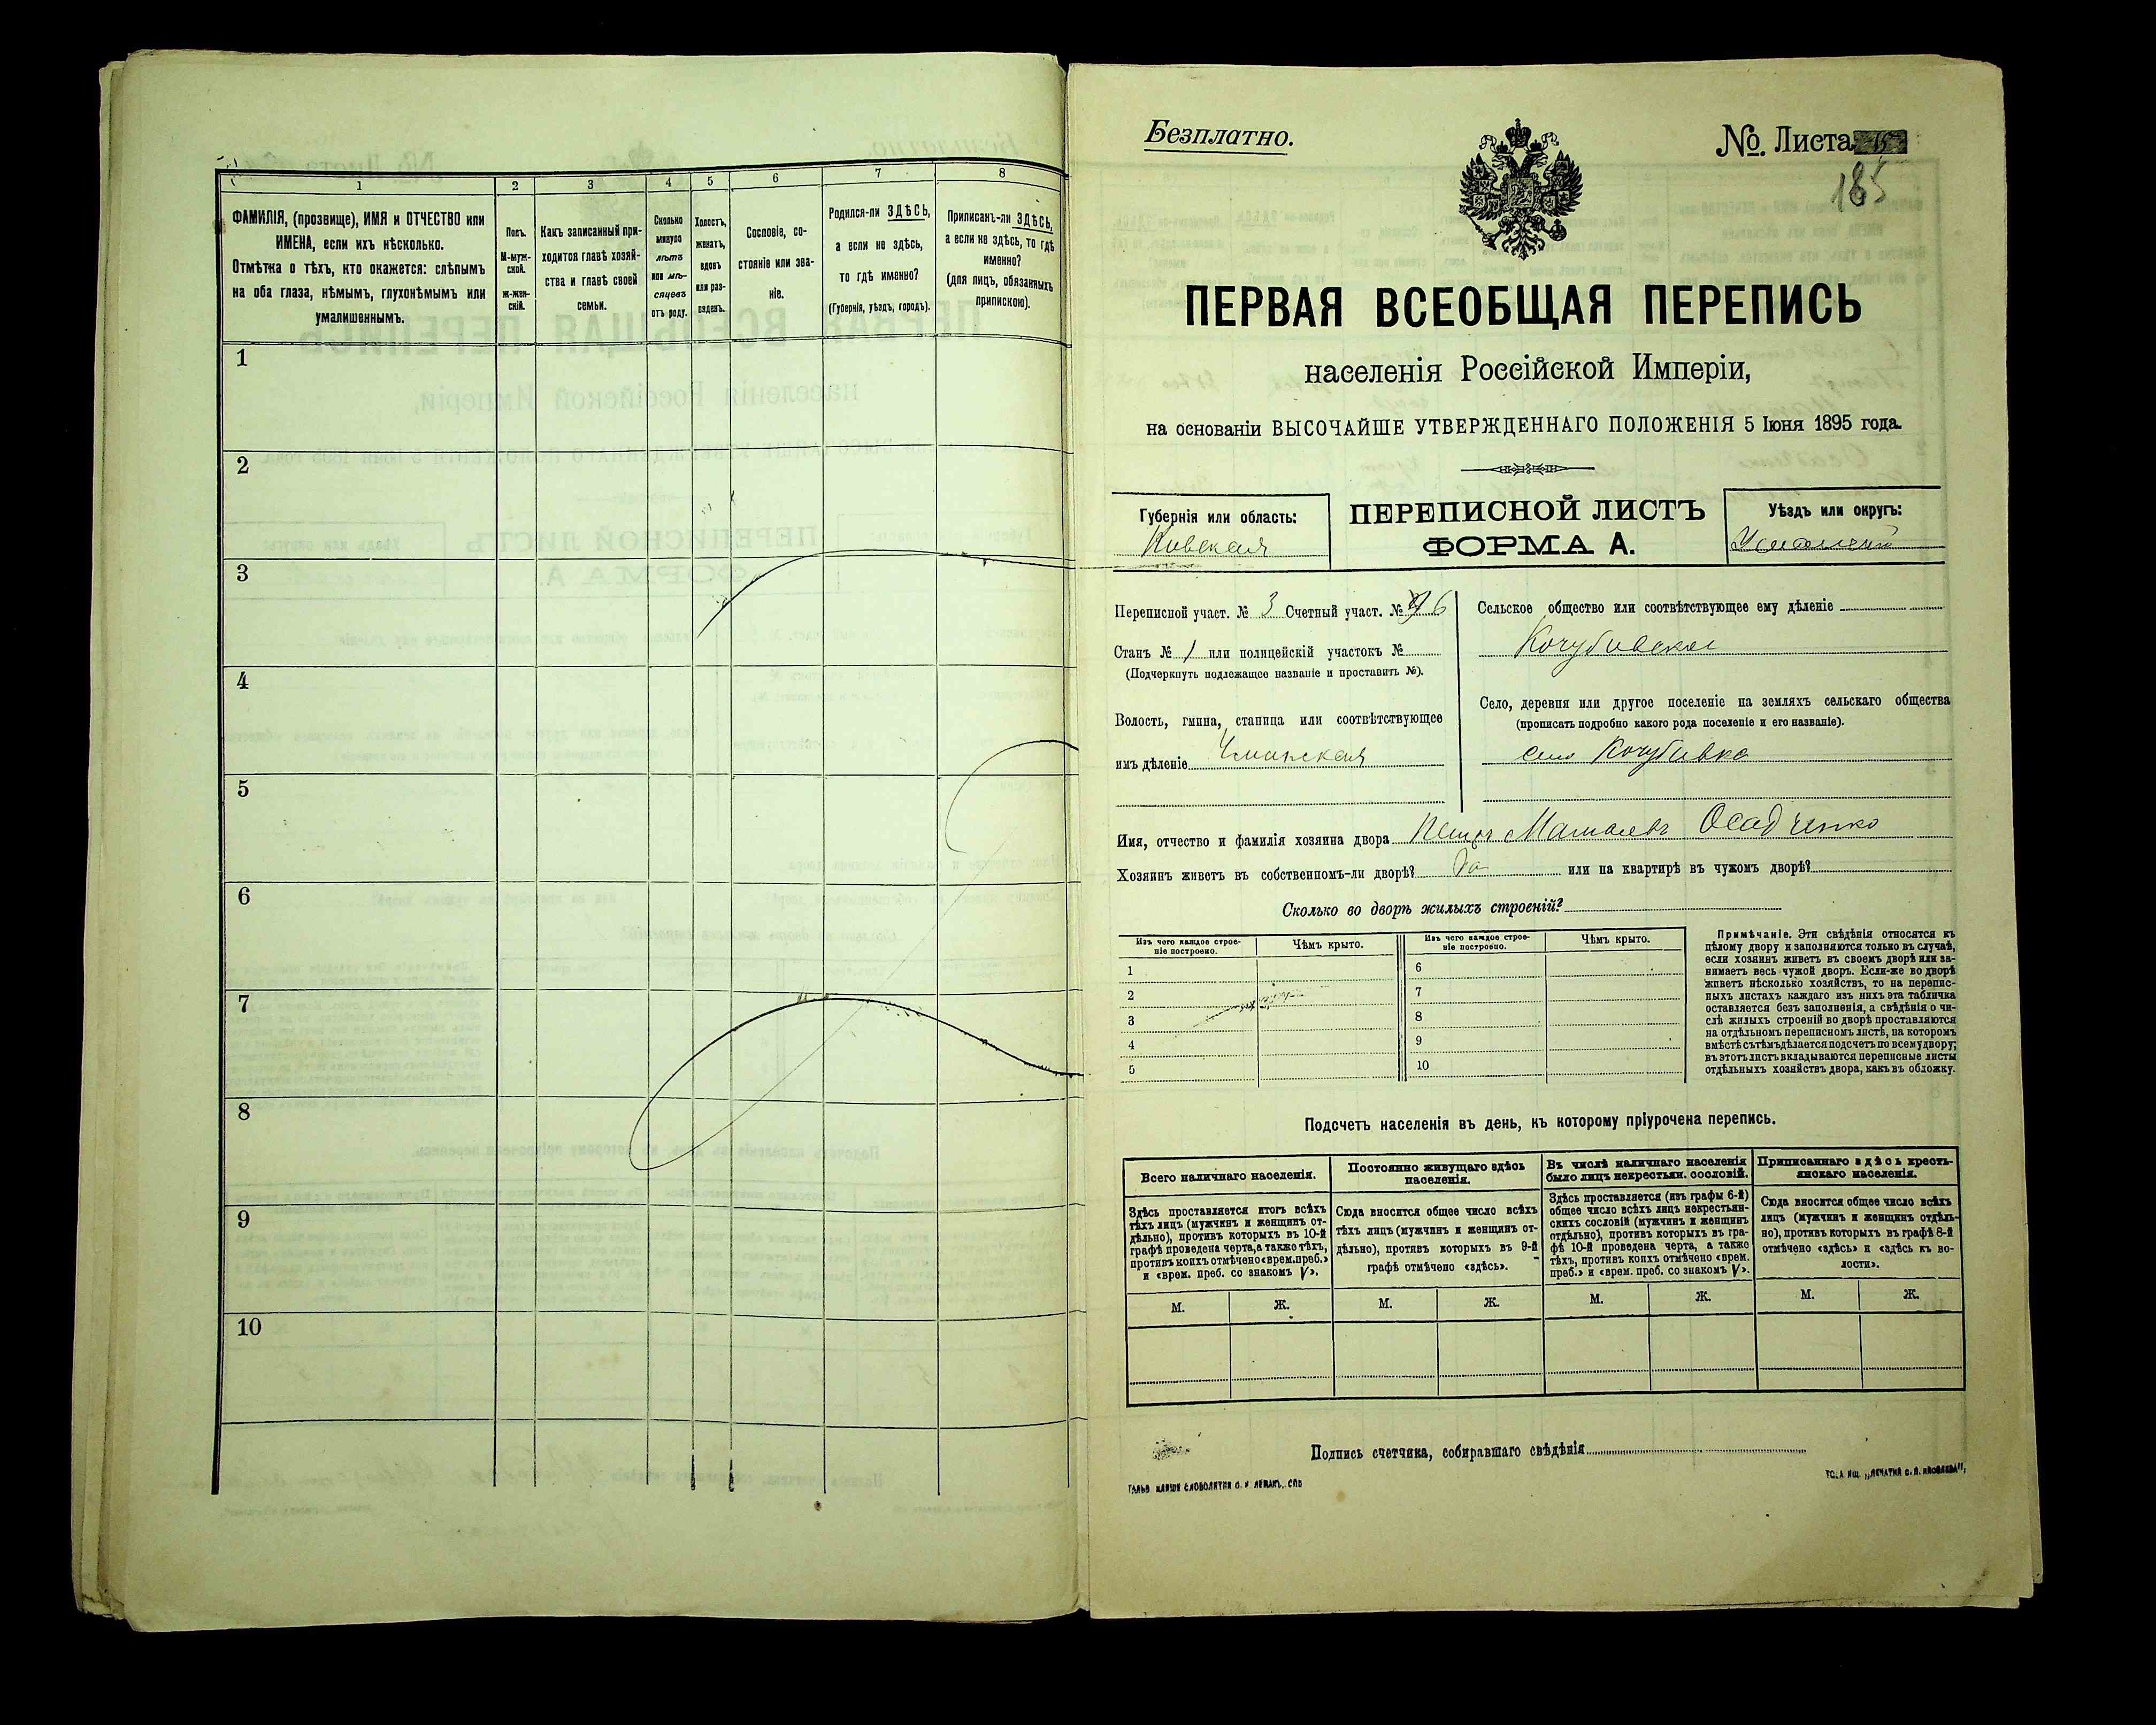 1
2
3
4
5
6
7
8
ФАМИЛІЯ, (прозвище), ИМЯ и ОТЧЕСТВО или
ИМЕНА, если ихъ нѣсколько.
Отмѣтка о тѣхъ, кто окажется: слѣпымъ
на оба глаза, нѣмымъ, глухонѣмымъ или
умалишеннымъ.
Полъ.
М-муж-
ской.
ж-жен-
скій.
Какъ записанный при-
ходится главѣ хозяй-
ства и главѣ своей
семьи.
Сколько
минуло
лѣтъ
или мѣ-
сяцевъ
отъ роду.
Холостъ,
женатъ,
вдовъ
или раз-
веденъ.
Сословіе, со-
стояніе или зва-
ніе.
Родился-ли ЗДѢСЬ,
а если не здѣсь,
то гдѣ именно?
(Губернія, уѣздъ, городъ).
Приписанъ-ли ЗДѢСЬ,
а если не здѣсь, то гдѣ
именно?
(для лицъ, обязанныхъ
припискою).
1
2
3
4
5
6
7
8
9
10
Безплатно.
№. Листа
185
ПЕРВАЯ ВСЕОБЩАЯ ПЕРЕПИСЬ
населенія Россійской Имперіи,
на основаніи ВЫСОЧАЙШЕ УТВЕРЖДЕННАГО ПОЛОЖЕНІЯ 5 Іюня 1895 года.
Губернія или область:
Кіевская
ПЕРЕПИСНОЙ ЛИСТЪ
ФОРМА А.
Уѣздъ или округъ:
Уманскій
Переписной участ. № 3 Счетный участ. № 6
Станъ № 1 или полицейскій участокъ №
(Подчеркнуть подлежащее названіе и проставить №).
Волость, гмина, станица или соотвѣтствующее
имъ дѣленіе Уманская
Сельское общество или соотвѣтствующее ему дѣленіе
Кочубіевское
Село, деревня или другое поселеніе на земляхъ сельскаго общества
(прописать подробно какого рода поселеніе и его названіе).
село Кочубіевка
Имя, отчество и фамилія хозяина двора Петръ Матвѣевъ Осадченко
Хозяинъ живетъ въ собственномъ-ли дворѣ? да или на квартирѣ въ чужомъ дворѣ?
Сколько во дворѣ жилыхъ строеній?
Изъ чего каждое строе-
ніе построено.
Чѣмъ крыто.
Изъ чего каждое строе-
ніе построено.
Чѣмъ крыто.
1
2
3
4
5
6
7
8
9
10
Примѣчаніе. Эти свѣдѣнія относятся къ
цѣлому двору и заполняются только въ случаѣ,
если хозяинъ живетъ въ своемъ дворѣ или за-
нимаетъ весь чужой дворъ. Если-же во дворѣ
живетъ нѣсколько хозяйствъ, то на перепис-
ныхъ листахъ каждаго изъ нихъ эта табличка
оставляется безъ заполненія, а свѣдѣнія о чи-
слѣ жилыхъ строеній во дворѣ проставляются
на отдѣльномъ переписномъ листѣ, на которомъ
вмѣстѣ съ тѣмъ дѣлается подсчетъ по всему двору;
въ этотъ листъ вкладываются переписные листы
отдѣльныхъ хозяйствъ двора, какъ въ обложку.
Подсчетъ населенія въ день, къ которому пріурочена перепись.
Всего наличнаго населенія.
Здѣсь проставляется итогъ всѣхъ
тѣхъ лицъ (мужчинъ и женщинъ от-
дѣльно), противъ которыхъ въ 10-й
графѣ проведена черта, а также тѣхъ,
противъ коихъ отмѣчено «врем. преб.»
и «врем. преб. со знакомъ V».
Постоянно живущаго здѣсь
населенія.
Сюда вносится общее число всѣхъ
тѣхъ лицъ (мужчинъ и женщинъ от-
дѣльно), противъ которыхъ въ 9-й
графѣ отмѣчено «здѣсь».
Въ числѣ наличнаго населенія
было лицъ некрестьян. сословій.
Здѣсь проставляется (изъ графы 6-й)
общее число всѣхъ лицъ некрестьян-
скихъ сословій (мужчинъ и женщинъ
отдѣльно), противъ которыхъ въ гра-
фѣ 10-й проведена черта, а также
тѣхъ, противъ коихъ отмѣчено «врем.
преб.» и «врем. преб. со знакомъ V».
Приписаннаго здѣсь кресть-
янскаго населенія.
Сюда вносится общее число всѣхъ
лицъ (мужчинъ и женщинъ отдѣль-
но), противъ которыхъ въ графѣ 8-й
отмѣчено «здѣсь» и «здѣсь къ во-
лости».
М. Ж. М. Ж. М. Ж. М. Ж.
Подпись счетчика, собиравшаго свѣдѣнія